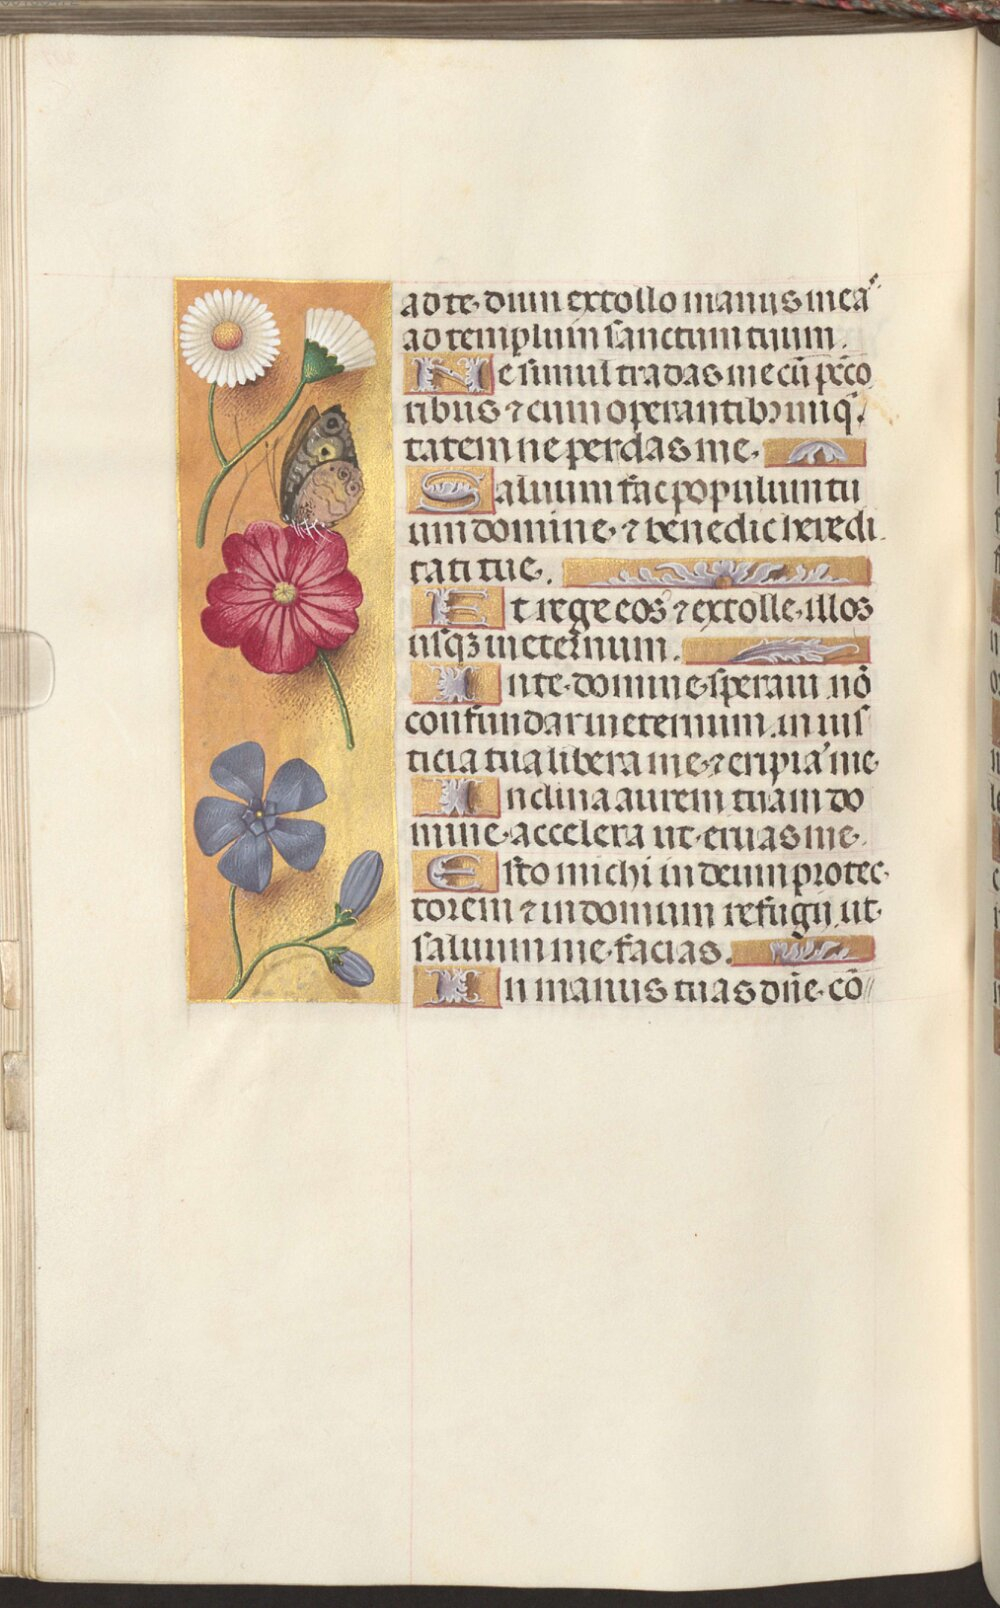 ad te. dum extollo manus meas
ad templum sanctum tuum.
Ne simul tradas me cū pēcca
toribus ⁊ cum operantibꝫ iniqͥ
tatem ne perdas me.
Saluum fac populum tu
um domine. ⁊ benedic heredi
tati tue.
Et rege eos ⁊ extolle. illos
usqꝫ in eternum.
In te. domine. speraui nō
confundar in eternum. in ius
ticia tua libera me. ⁊ eripia me
Inclina aurem tuam do
mine. accelera ut. eruas me.
Esto michi in deum protec
torem ⁊ in domum refugii ut.
saluum me. facias.
In manus tuas dn̄e. cō